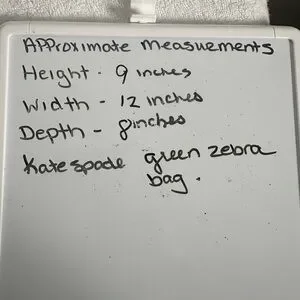 Approximate measuements
Height - 9 inches
Width - 12 inches
Depth - 8inches
Kate spade green zebra
bag.